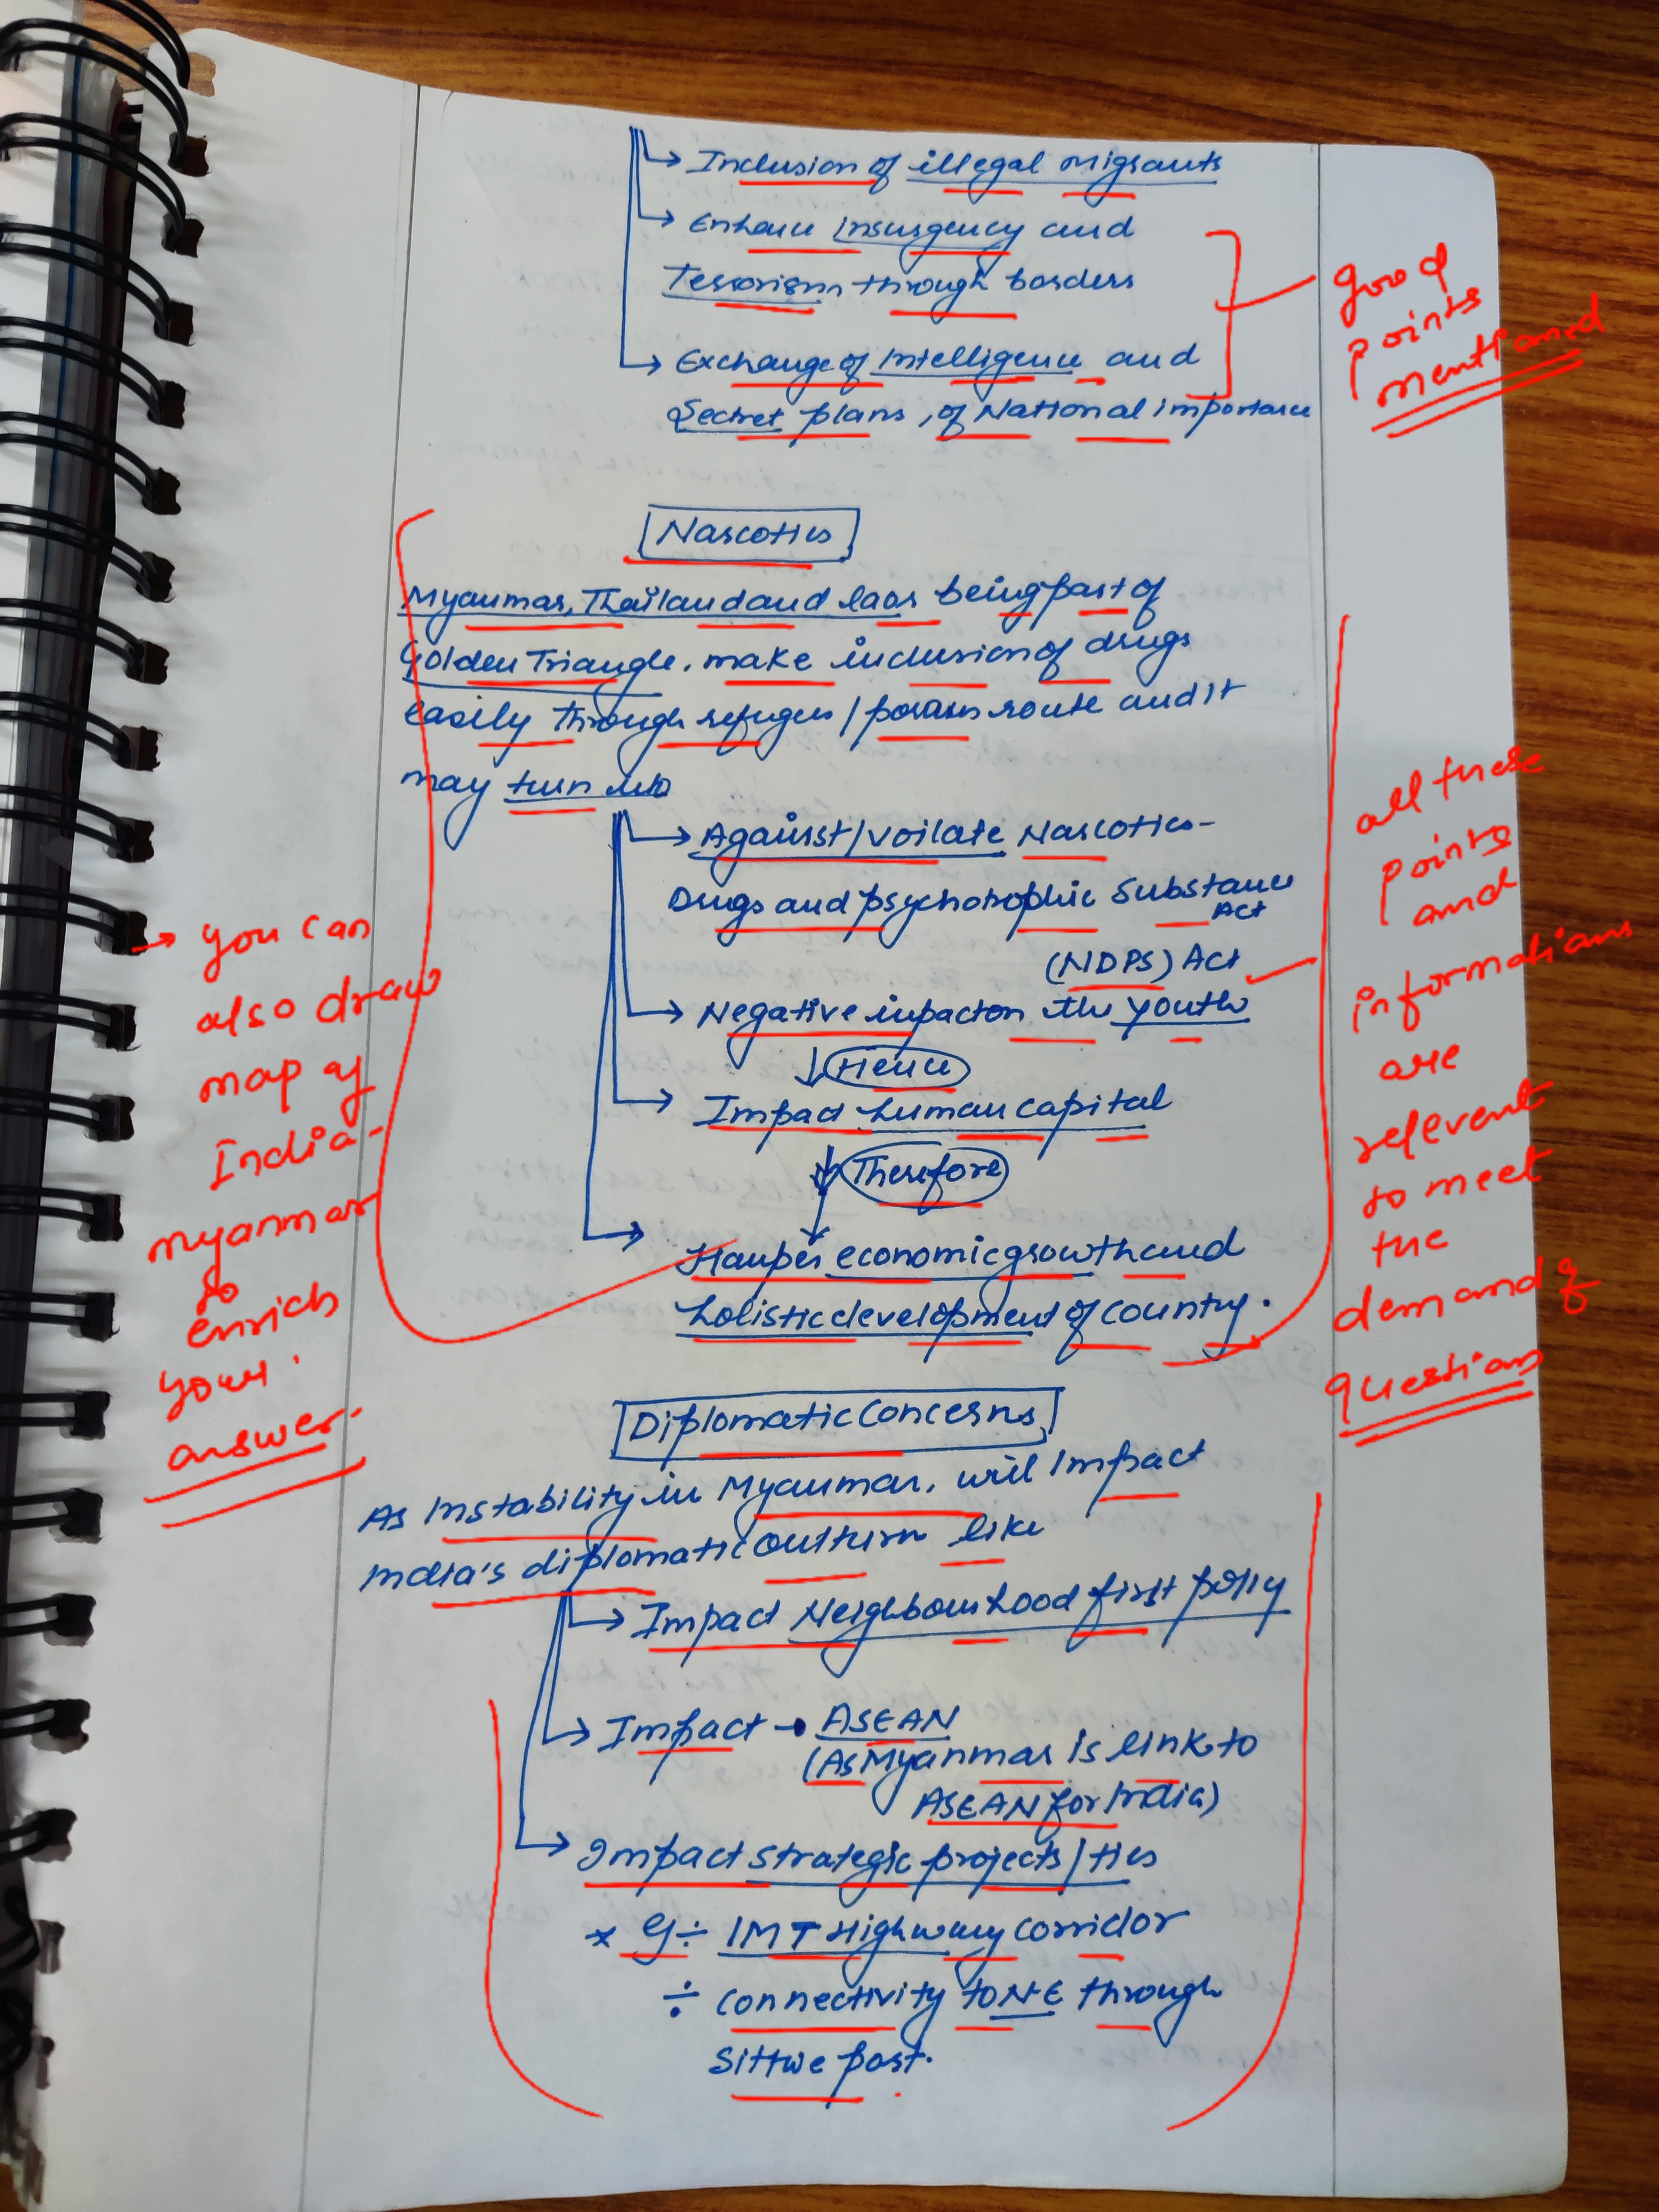 Inclusion of illegal migrants
Enhance insurgency and
Terrorism through borders
Exchange of Intelligence and
Secret plans, of National importance
good
points
mentioned
Narcotics
Myanmar, Thailand and laos being part of
Golden Triangle, make inclusion of drugs
easily through refugees / porous route and it
may turn into
Against/voilate Narcotics-
Drugs and psychotrophic Substance
Act
(NDPS) Act
Negative impact on the youth
Hence
Impact human capital
Therefore
Hamper economic growth and
holistic development of country.
you can
also draw
map of
India-
myanmar
to
enrich
your
answer.
all these
points
and
informations
are
relevent
to meet
the
demand of
question
Diplomatic Concerns
As instability in Myanmar, will impact
India's diplomatic outturn like
Impact Neighbourhood first policy
Impact → ASEAN
(As Myanmar is link to
ASEAN for India)
Impact strategic projects/ties
IMT Highway corridor
÷ connectivity to NE through
Sittwe port.